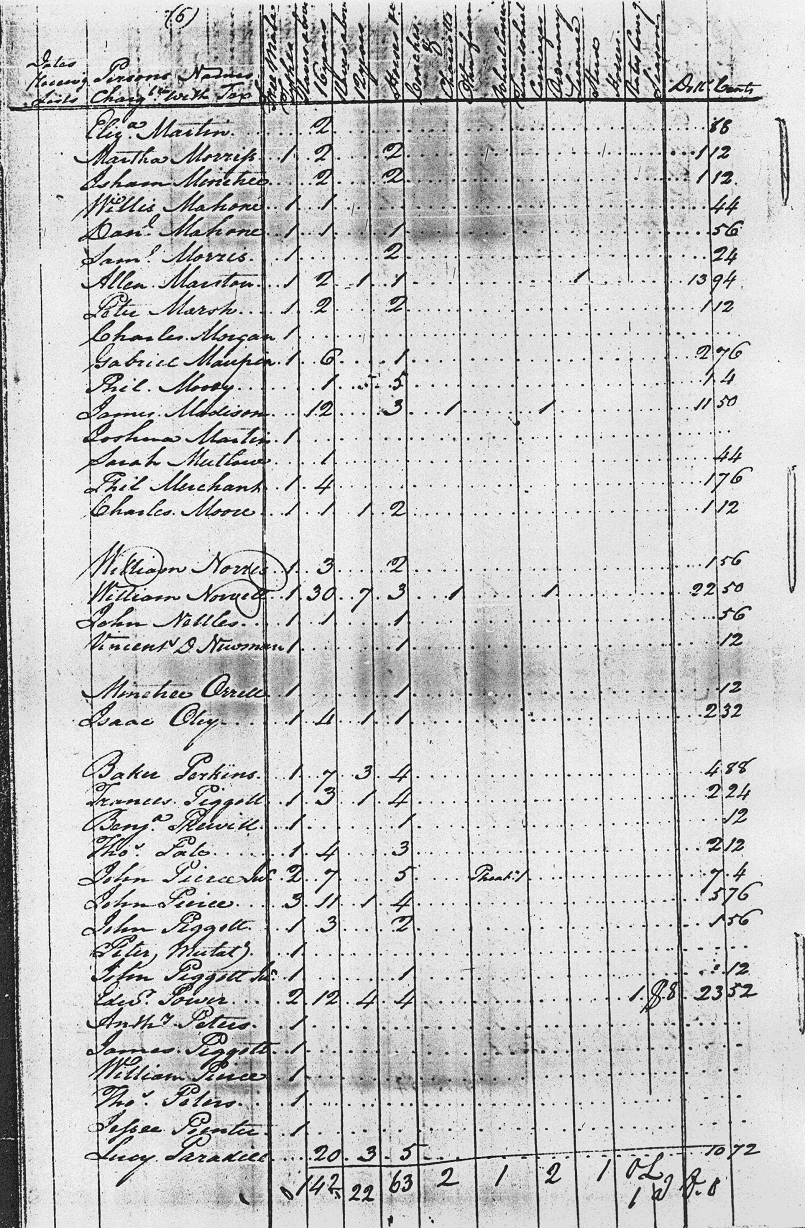 (6)
Dates Receivg Lists Persons Names Chargble With Tax Free Males Blacks above 16 years 12 years Horses &c Coaches Chariots Carriages License Stud Horses Dolls Cents
Eliza. Martin 2 88
Martha Morris 1 2 2 1 12
Isham Minetree 2 2 1 12
Willis Mahone 1 1 44
Danl. Mahone 1 1 1 56
Saml. Morris 1 2 24
Allen Marston 1 2 1 1 1 13 94
Peter Marsh 1 2 2 1 12
Charles Morgan 1
Gabriel Maupin 1 6 1 2 76
Phil. Moody 1 5 5 1 4
James Madison 12 3 1 1 11 50
Joshua Martin 1
Sarah Mutlow 1 44
Phil Merchant 1 4 1 76
Charles Moore 1 1 1 2 1 12
William Norris 1 3 2 1 56
William Norvell 1 30 7 3 1 1 22 50
John Nettles 1 1 1 56
Vincent D Newman 1 1 12
Minetree Orrell 1 1 12
Isaac Oley 1 4 1 1 2 32
Baker Perkins 1 7 3 4 4 88
Frances Piggott 1 3 1 4 2 24
Benja. Prewitt 1 1 12
Thos. Pate 1 4 3 2 12
John Pierce Junr 2 7 5 Phaet. 1 7 4
John Pierce 3 11 1 4 5 76
John Piggott 1 3 2 1 56
Peter, Mulato 1
John Piggott Jur 1 1 12
Edwd. Power 2 12 4 4 1 $8 23 52
Anthy Peters 1
James Piggott 1
William Pierce 1
Thos. Peters 1
Jessee Pointer 1
Lucy Paradise 20 3 5 10 72
142 22 63 2 1 2 1